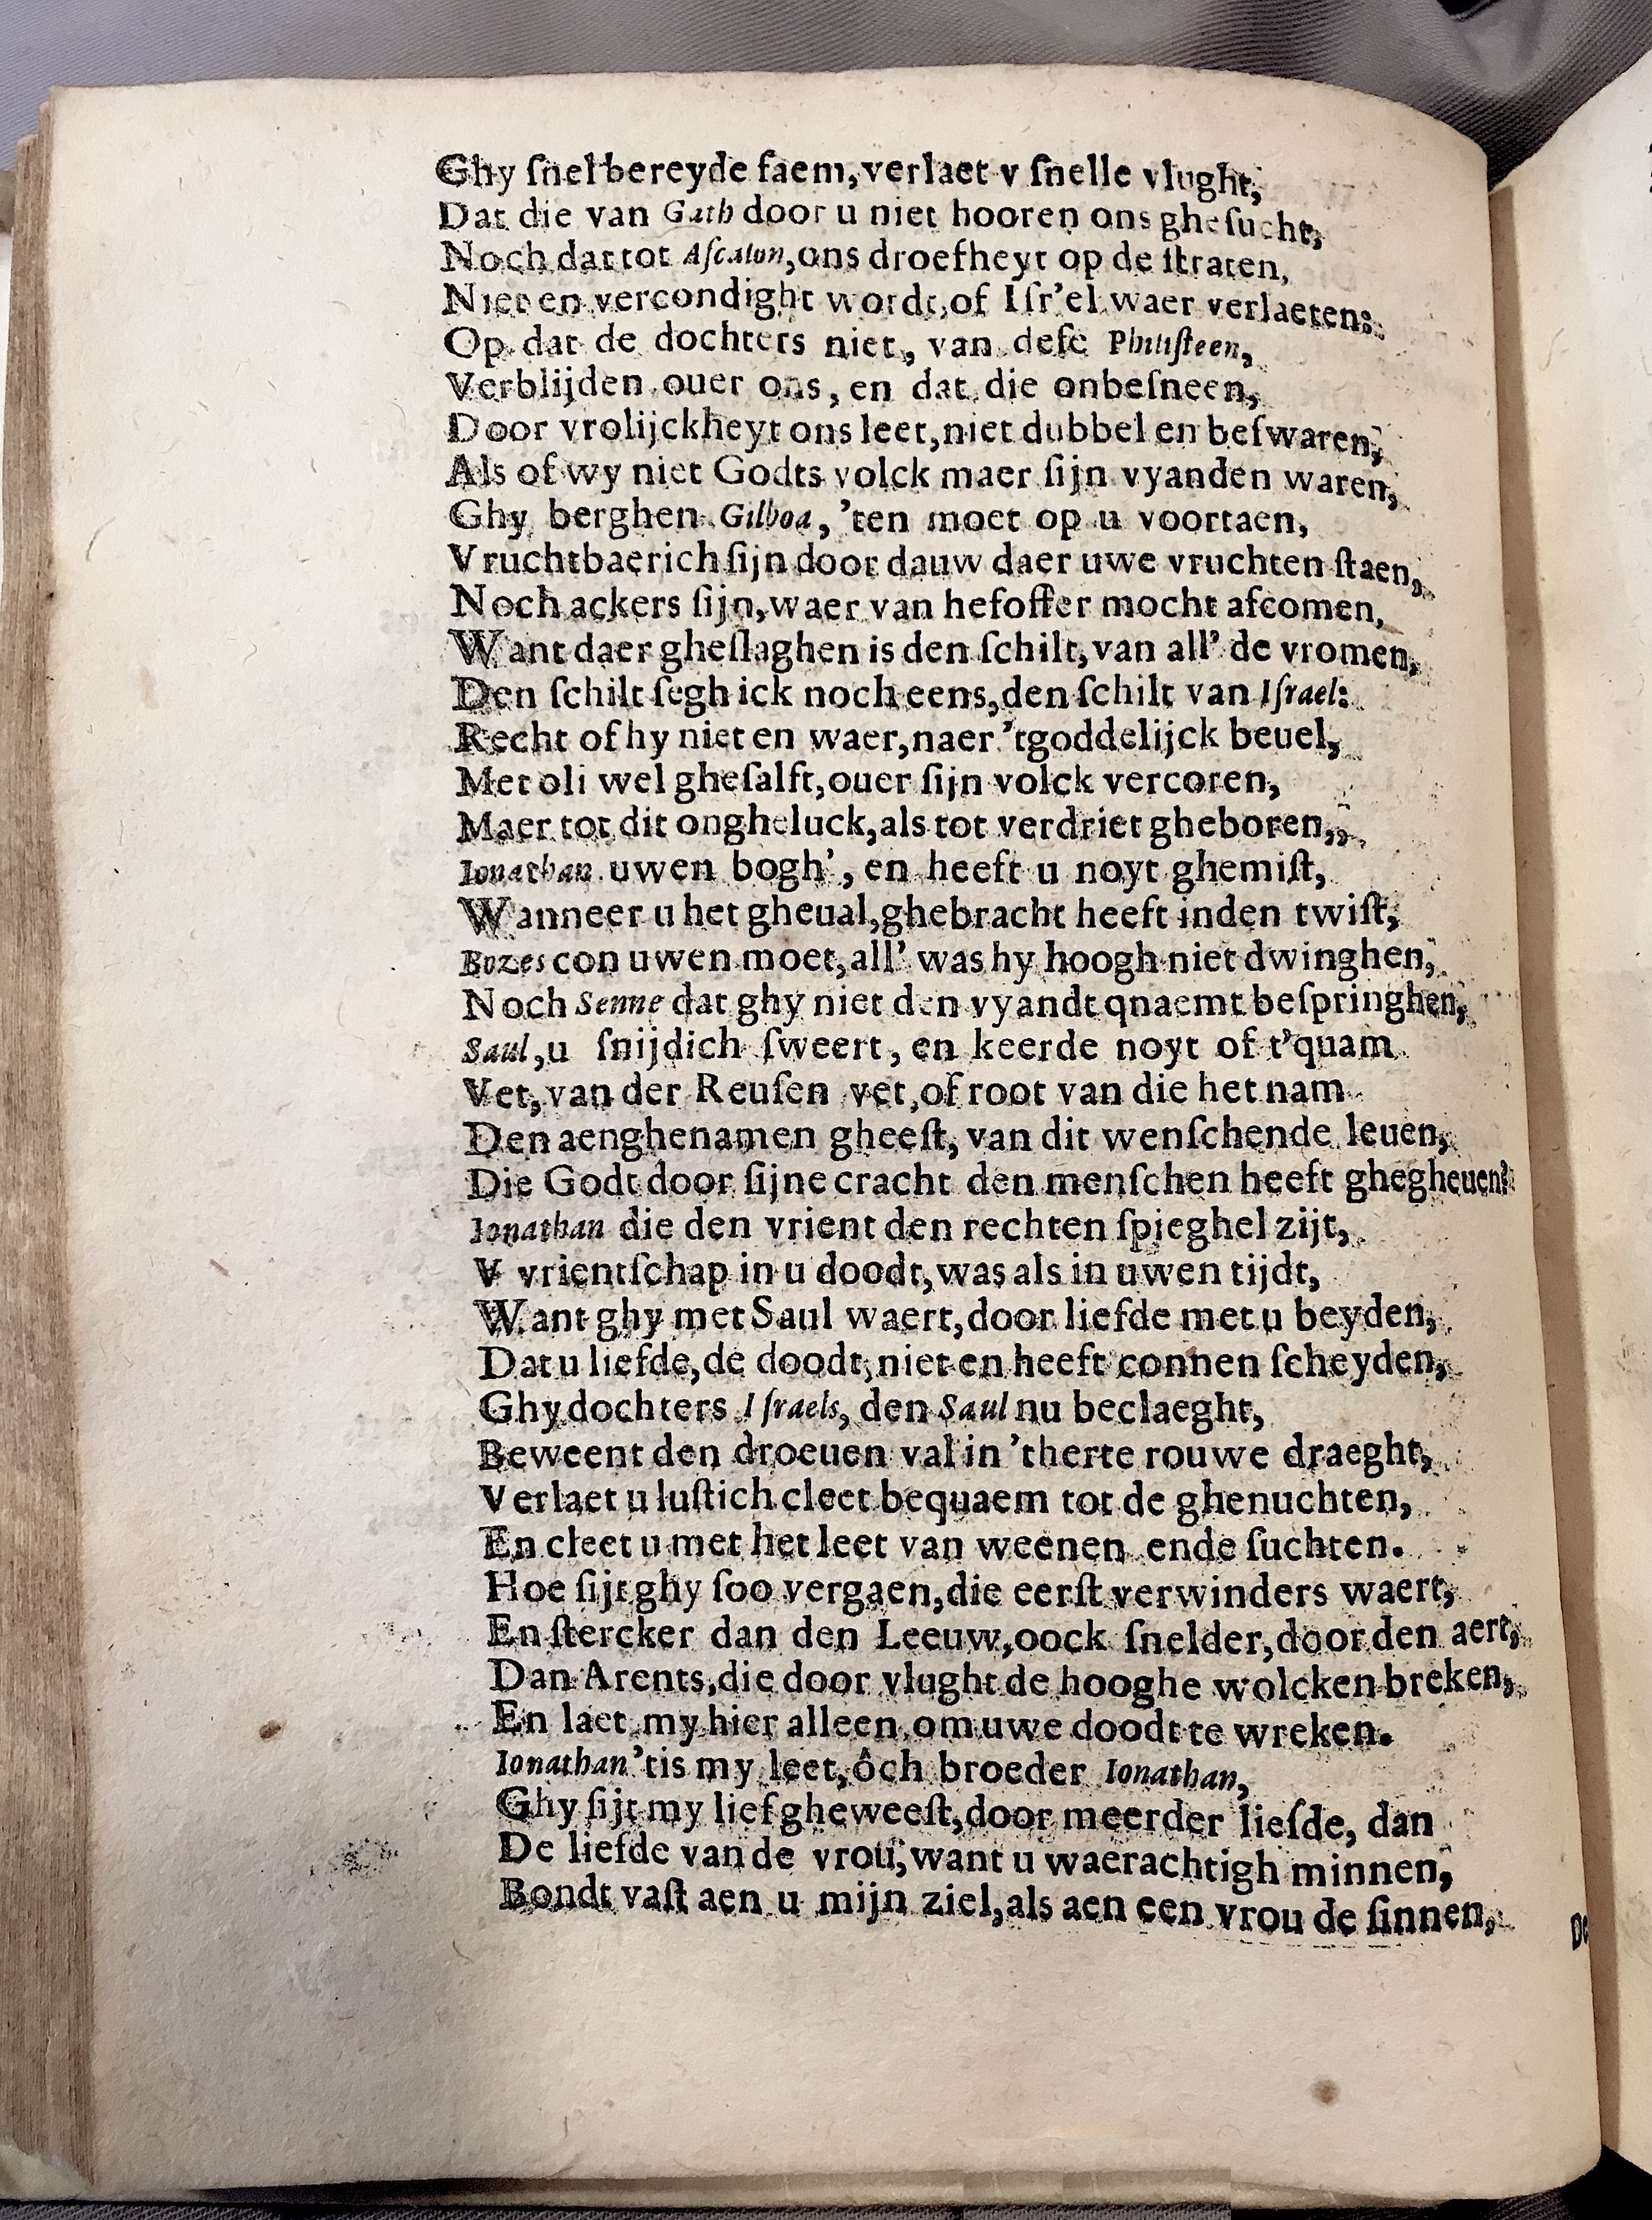 Ghy ſnel bereyde faem, verlaet v ſnelle vlught,
Dat die van Gath door u niet hooren ons gheſucht,
Noch dat tot Aſcalon, ons droefheyt op de ſtraten,
Niet en vercondight wordt, of Iſr'el waer verlaeten:
Op dat de dochters niet, van deſe Philiſteen,
Verblijden ouer ons, en dat die onbeſneen,
Door vrolijckheyt ons leet, niet dubbel en beſwaren,
Als of wy niet Godts volck maer ſijn vyanden waren,
Ghy berghen Gilboa, 'ten moet op u voortaen,
Vruchtbaerich ſijn door dauw daer uwe vruchten ſtaen,
Noch ackers ſijn, waer van hefoffer mocht afcomen,
Want daer gheſlaghen is den ſchilt, van all' de vromen,
Den ſchilt ſegh ick noch eens, den ſchilt van Iſrael:
Recht of hy niet en waer, naer 'tgoddelijck beuel,
Met oli wel gheſalft, ouer ſijn volck vercoren,
Maer tot dit ongheluck, als tot verdriet gheboren,
Ionathan uwen bogh', en heeft u noyt ghemiſt,
Wanneer u het gheual, ghebracht heeft inden twiſt,
Bozes con uwen moet, all' was hy hoogh niet dwinghen,
Noch Senne dat ghy niet den vyandt qnaemt beſpringhen,
Saul, u ſnijdich ſweert, en keerde noyt of t'quam
Vet, van der Reuſen vet, of root van die het nam
Den aenghenamen gheeſt, van dit wenſchende leuen,
Die Godt door ſijne cracht den menſchen heeft ghegheuen?
Ionathan die den vrient den rechten ſpieghel zijt,
V vrientſchap in u doodt, was als in uwen tijdt,
Want ghy met Saul waert, door liefde met u beyden,
Dat u liefde, de doodt, niet en heeft connen ſcheyden,
Ghy dochters Iſraels, den Saul nu beclaeght,
Beweent den droeuen val in 'therte rouwe draeght,
Verlaet u luſtich cleet bequaem tot de ghenuchten,
En cleet u met het leet van weenen ende ſuchten.
Hoe ſijt ghy ſoo vergaen, die eerſt verwinders waert,
En ſtercker dan den Leeuw, oock ſnelder, door den aert,
Dan Arents, die door vlught de hooghe wolcken breken,
En laet my hier alleen, om uwe doodt te wreken.
Ionathan 'tis my leet, ôch broeder Ionathan,
Ghy ſijt my lief gheweeſt, door meerder lieſde, dan
De liefde van de vrou, want u waerachtigh minnen,
Bondt vaſt aen u mijn ziel, als aen een vrou de ſinnen,